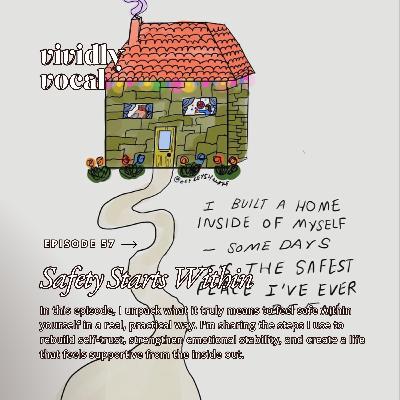 vividly
vocal
I BUILT A HOME
INSIDE OF MYSELF
— SOME DAYS
THE SAFEST
PLACE I'VE EVER
EPISODE 57 →
Safety Starts Within
In this episode, I unpack what it truly means to feel safe within
yourself in a real, practical way. I'm sharing the steps I use to
rebuild self-trust, strengthen emotional stability, and create a life
that feels supportive from the inside out.